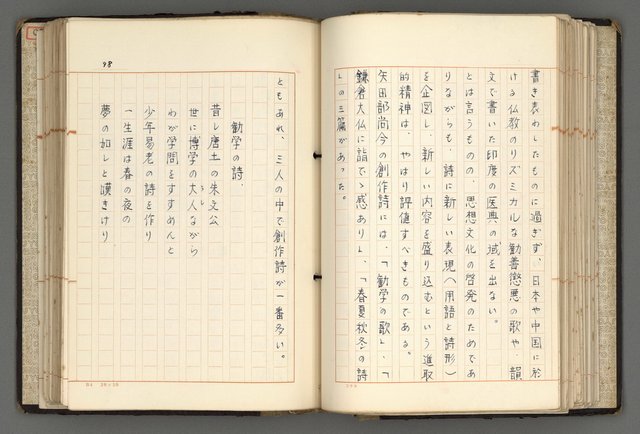 書き表わしたものに過ぎず、日本や中国に於
ける仏教のリズミカルな勧善懲悪の歌や、韻
文で書いた印度の医典の域を出ない。
とは言うものの、思想文化の啓発のためであ
りながらも、詩に新しい表現（用語と詩形）
を企図し、新しい内容を盛り込むという進取
的精神は、やはり評価すべきものである。
矢田部尚今の創作詩には、「勧学の歌」、「
鎌倉大仏に詣でゝ感あり」、「春夏秋冬の詩
」の三篇があった。
ともあれ、三人の中で創作詩が一番多い。
勧学の詩、
昔し唐土の朱文公
世に博学の大人ながら
わが学問をすすめんと
少年易老の詩を作り
一生涯は春の夜の
夢の如しと嘆きけり
98